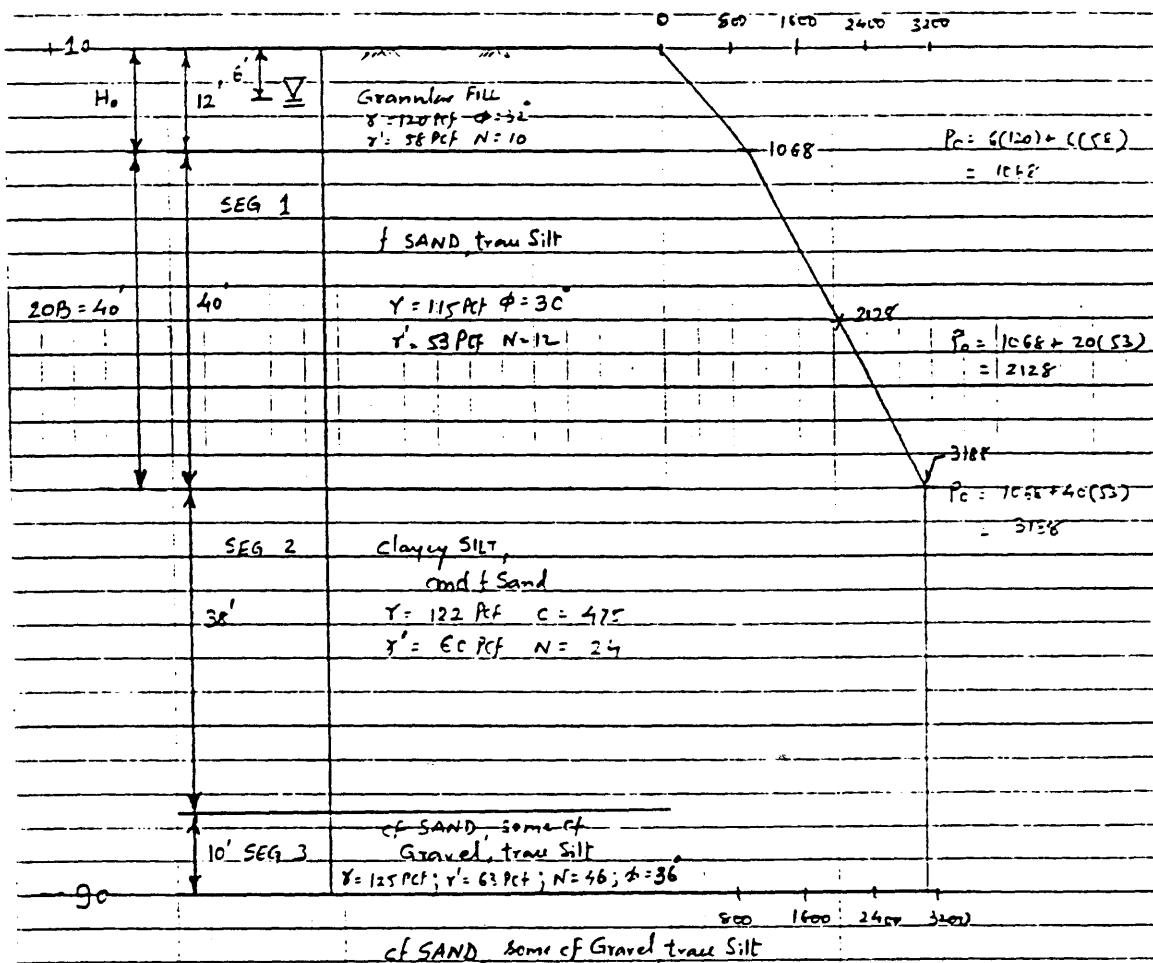 0 800 1600 2400 3200
+10
6'
H₀
12'
Granular FILL
γ = 120 Pcf Φ = 32°
γ' = 58 Pcf N = 10
1068
P₀ = 6(120) + 6(58)
= 1068
SEG 1
f SAND, trace Silt
20B = 40'
40'
γ = 115 Pcf Φ = 30°
γ' = 53 Pcf N = 12
2128
P₀ = 1068 + 20(53)
= 2128
3188
P₀ = 1068 + 40(53)
= 3188
SEG 2
Clayey SILT,
and f Sand
38'
γ = 122 Pcf C = 475
γ' = 60 Pcf N = 24
cf SAND, some cf
Gravel, trace Silt
10' SEG 3
γ = 125 Pcf; γ' = 63 Pcf; N = 46; Φ = 36°
-90
800 1600 2400 3200
cf SAND some cf Gravel trace Silt